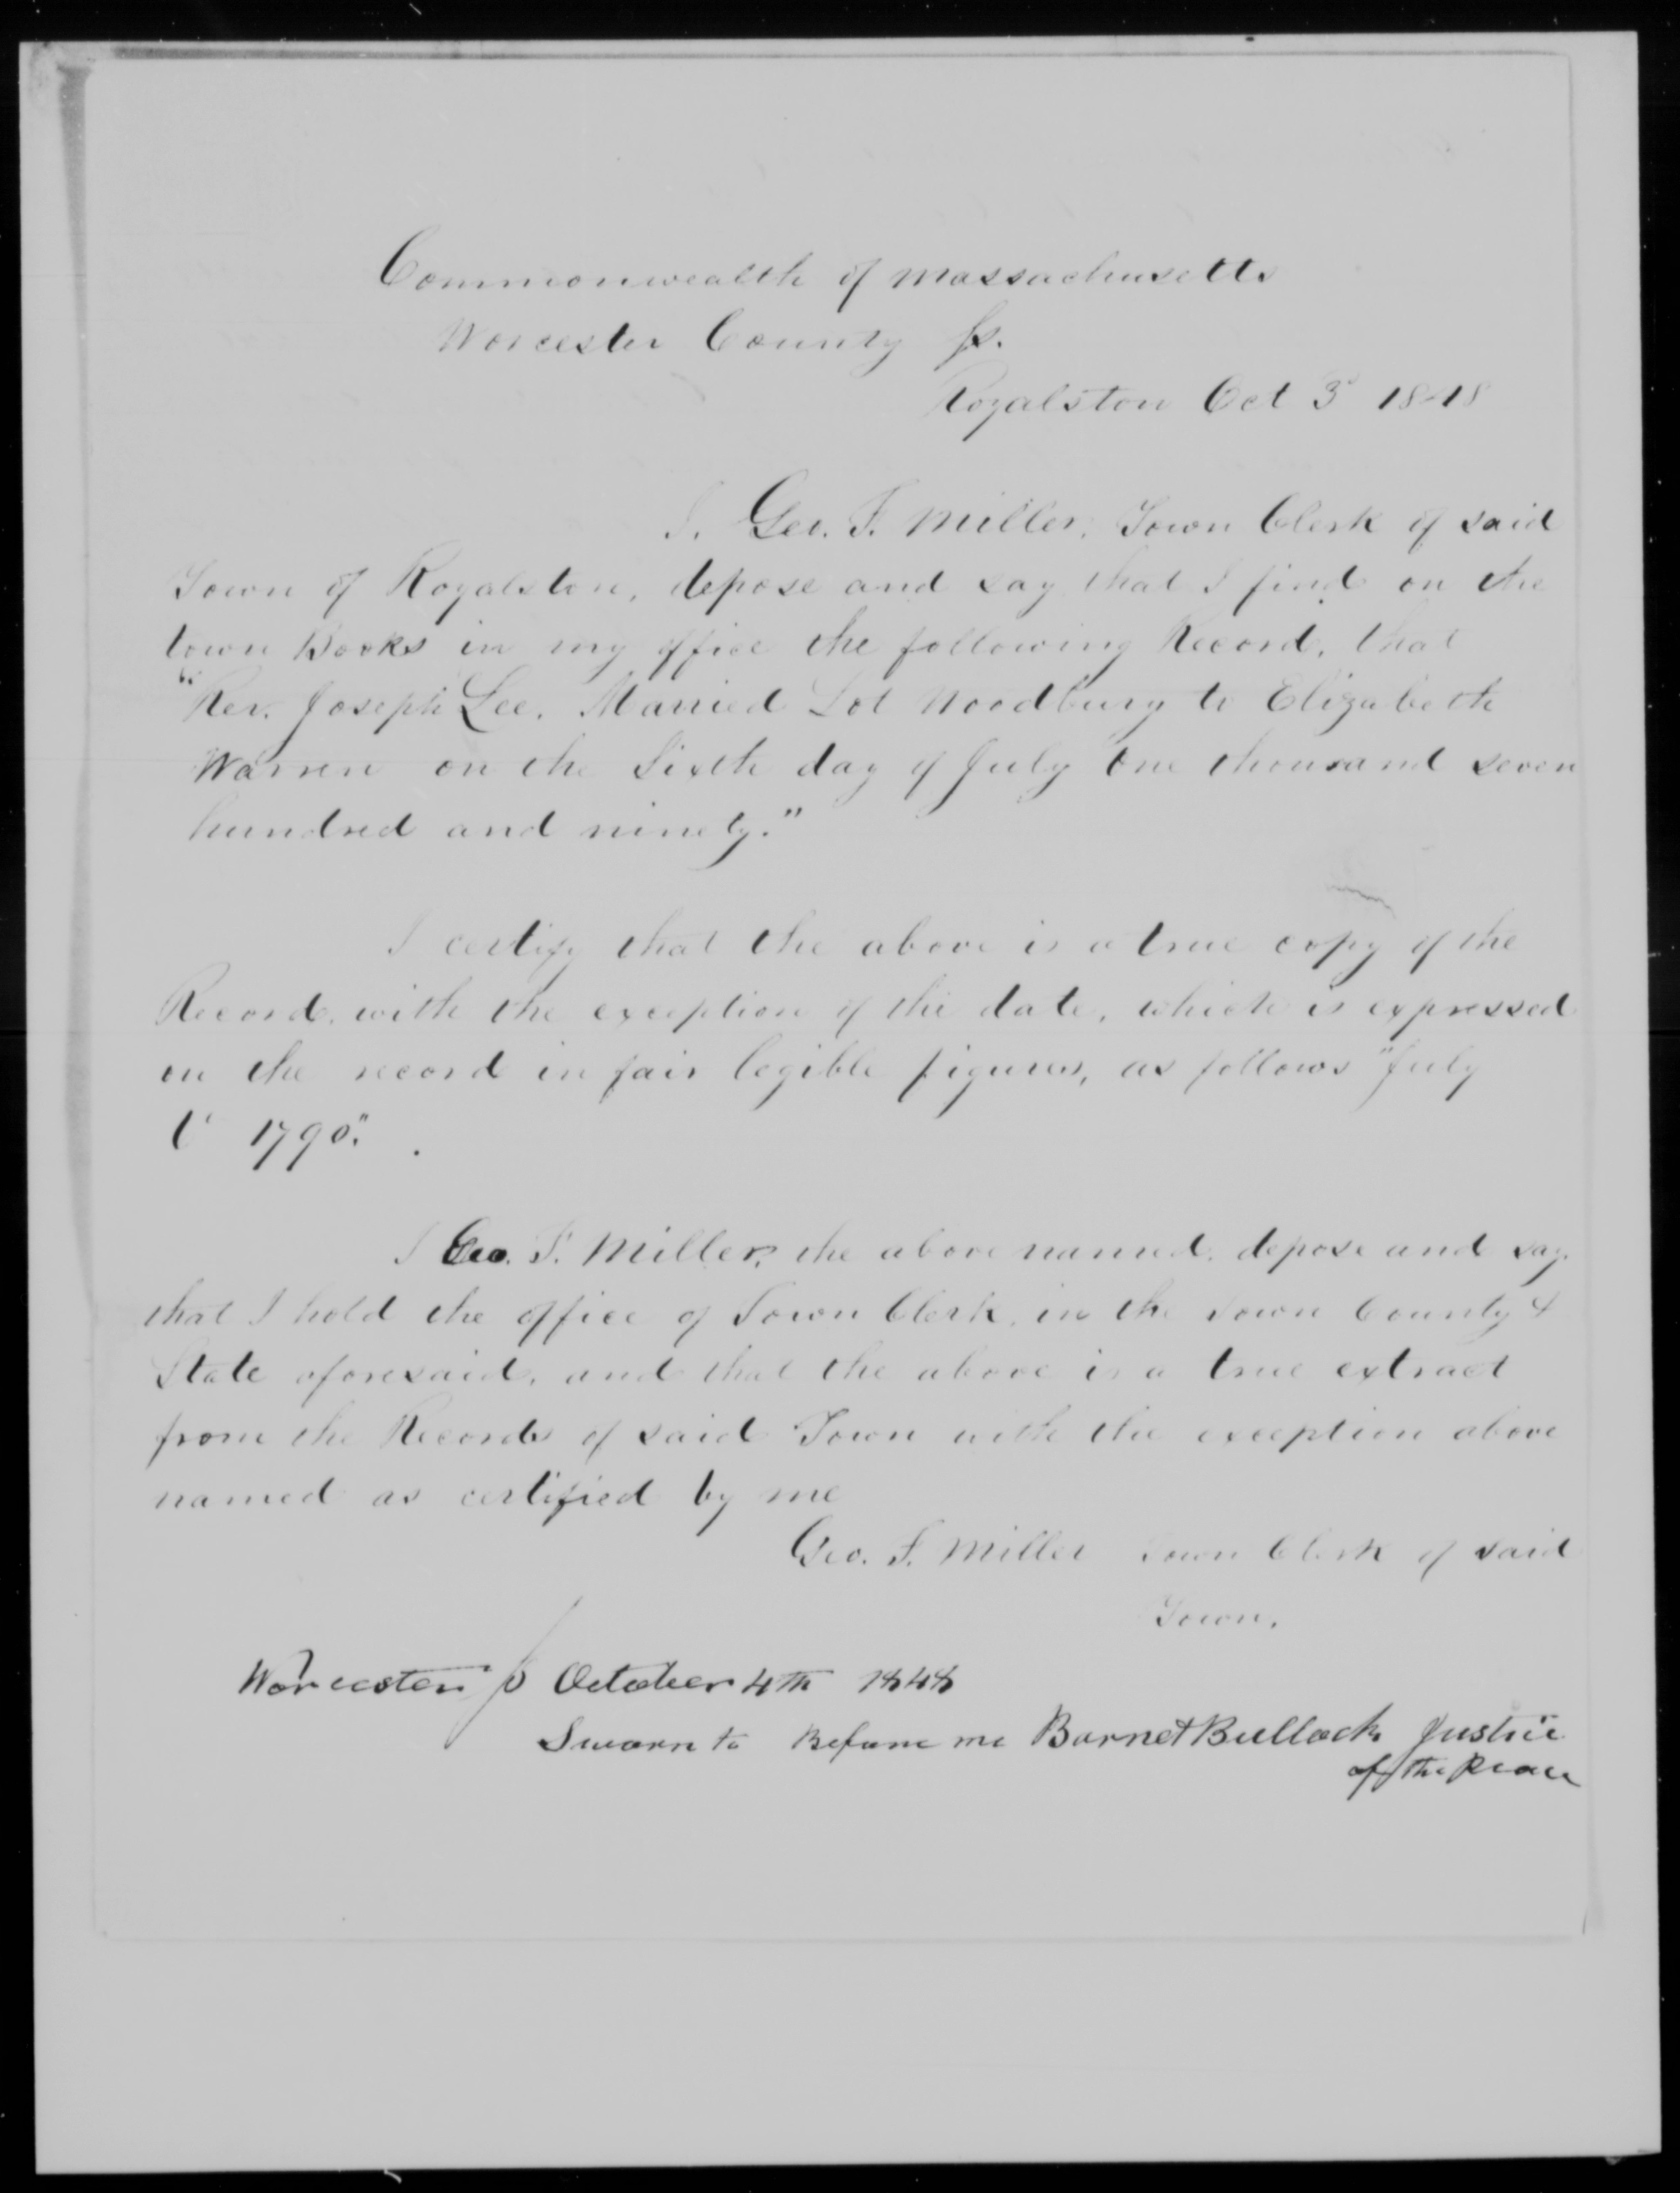 Commonwealth of Massachusetts
Worcester County Ss.
Royalston Oct 3d 1848
I, Geo. F. Miller, Town Clerk of said
Town of Royalston, depose and say that I find on the
town Books in my office the following Record, that
"Rev. Joseph Lee, Married Lot Woodbury to Elizabeth
Warren on the Sixth day of July One thousand seven
hundred and ninety."
I certify that the above is a true copy of the
Record, with the exception of the date, which is expressed
on the record in fair legible figures, as follows "July
6 1790".
I Geo. F. Miller, the above named, depose and say,
that I hold the office of Town Clerk, in the Town County &
State aforesaid, and that the above is a true extract
from the Records of said Town with the exception above
named as certified by me
Geo. F. Miller Town Clerk of said
Town.
Worcester Ss October 4th 1848
Sworn to Before me Barnet Bullock Justice
of the Peace